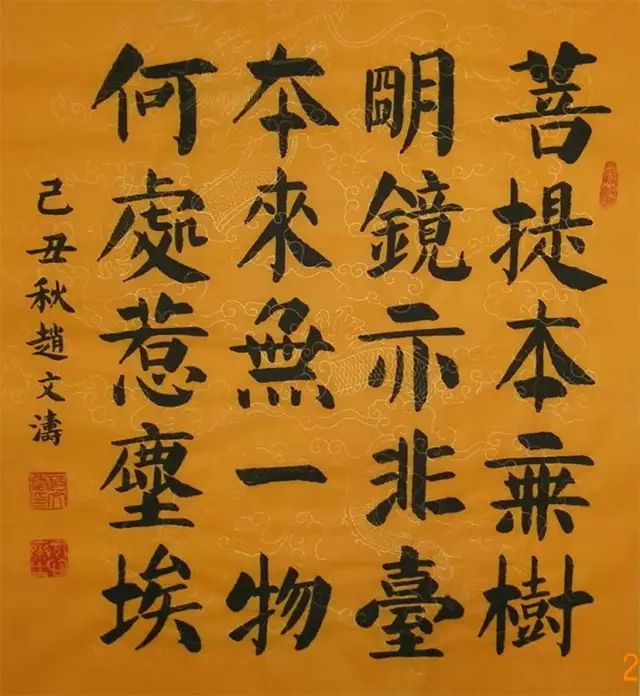 菩提本無樹
明鏡亦非臺
本來無一物
何處惹塵埃
己丑秋趙文濤
2